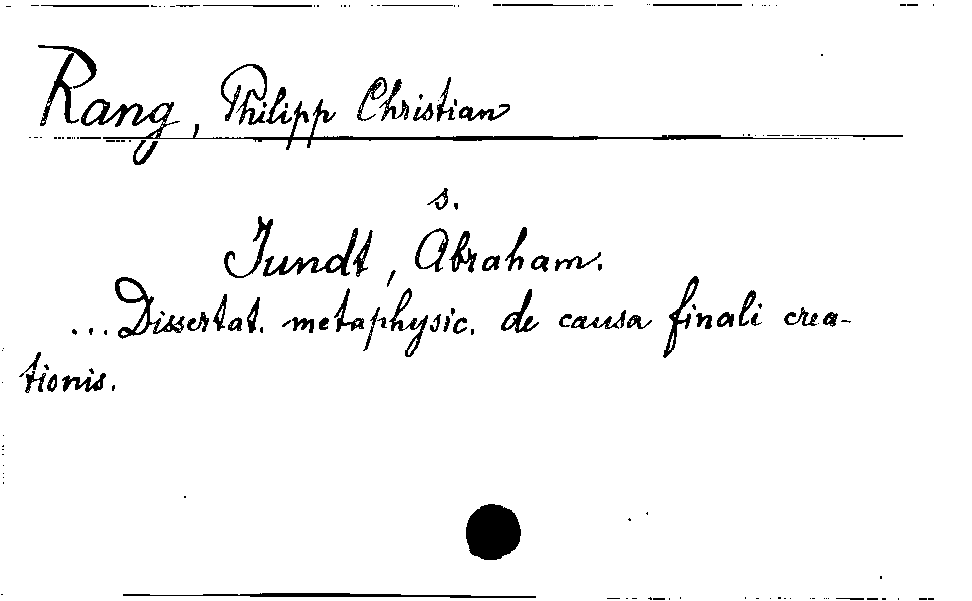 Rang, Philipp Christian
s.
Jundt, Abraham.
... Dissertat. metaphysic. de causa finali crea-
tionis.